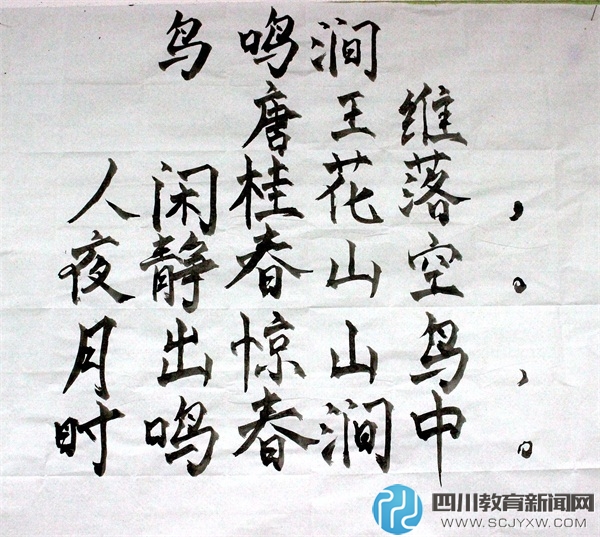 鸟鸣涧
唐 王维
人闲桂花落，
夜静春山空。
月出惊山鸟，
时鸣春涧中。
四川教育新闻网
WWW.SCJYXW.COM